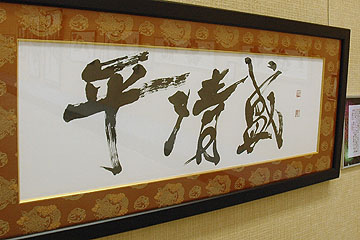 平清盛